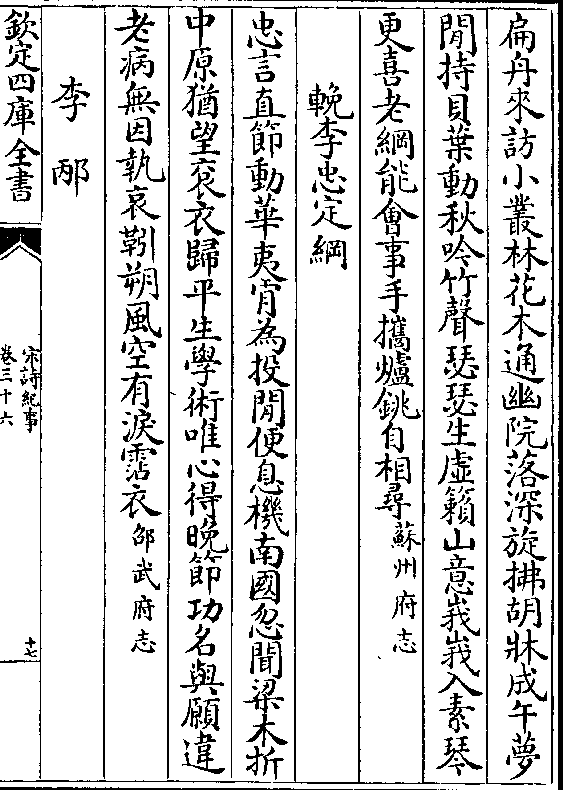 扁舟來訪小叢林花木通幽院落深旋拂胡牀成午夢
閒持貝葉動秋吟竹聲瑟瑟生虛籟山意峩峩入素琴
更喜老綱能會事手攜爐銚自相尋蘇州府志
輓李忠定綱
忠言直節動華夷肯為投閒便息機南國忽聞梁木折
中原猶望衮衣歸平生學術唯心得晚節功名與願違
老病無因執哀靷朔風空有淚霑衣邵武府志
李邴
欽定四庫全書
宋詩紀事
卷三十六
十七